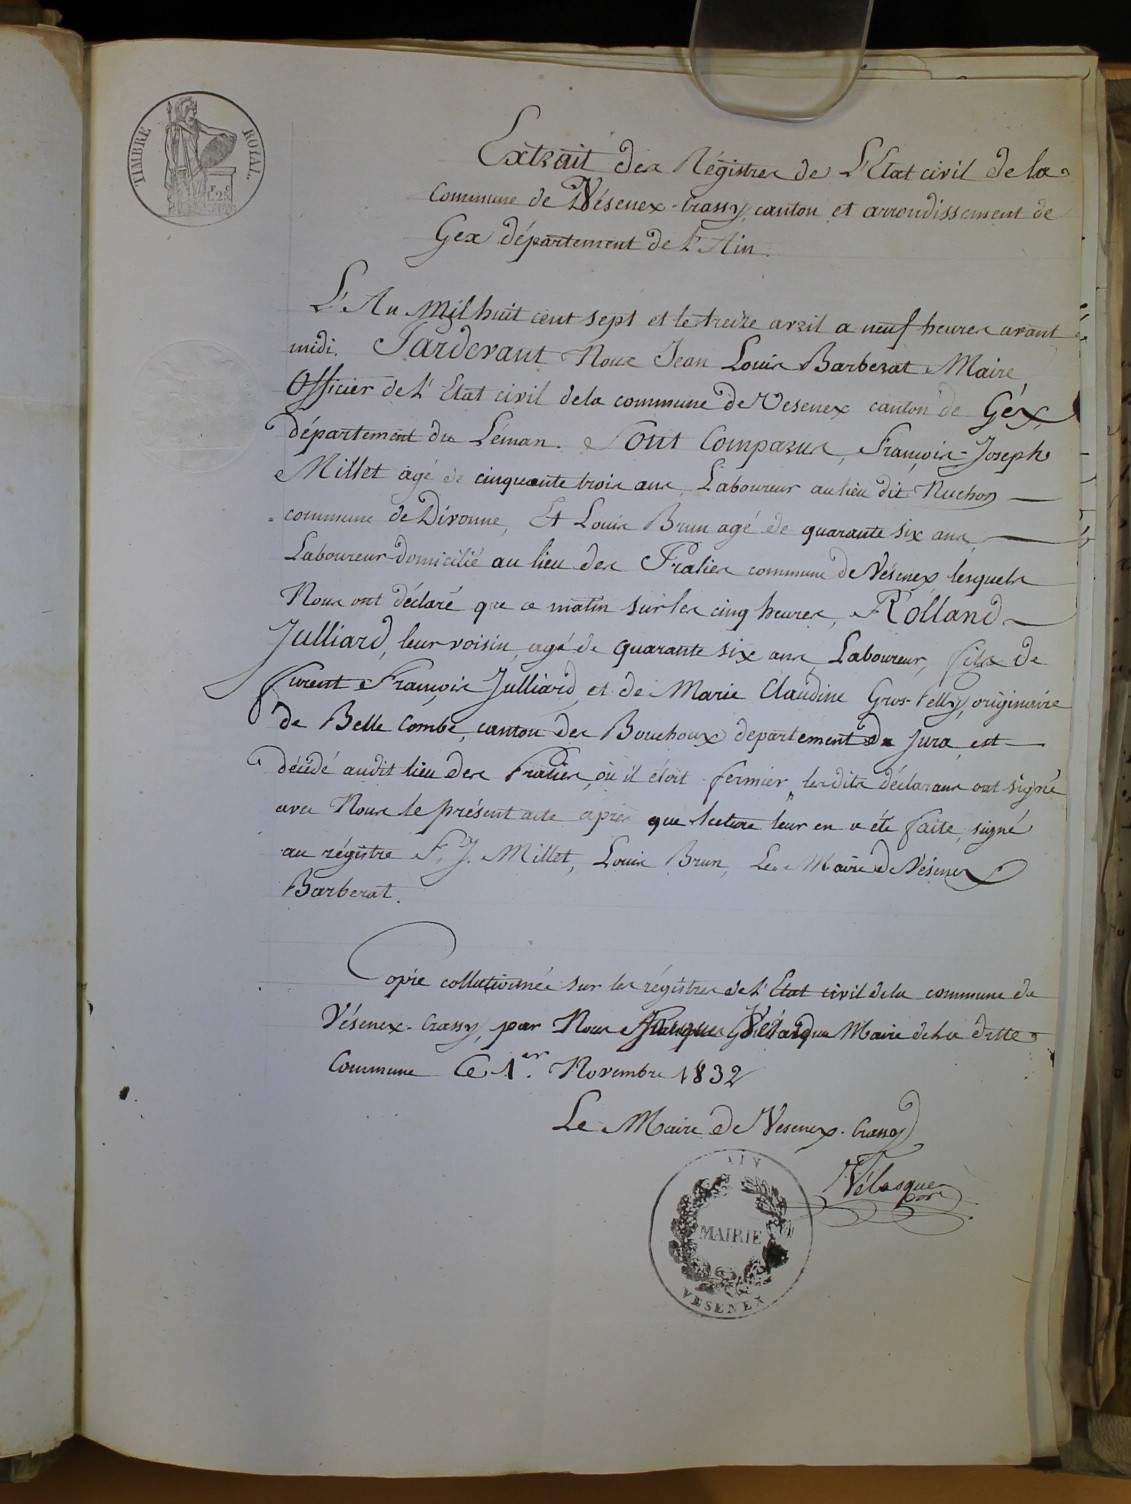 TIMBRE ROYAL.
Extrait des Régistres de L'Etat civil de la
commune de Vésenex-Crassy, canton et arrondissement de
Gex département de L'Ain.
L'An Mil huit cent sept et le treize avril a neuf heures avant
midi. Pardevant Nous Jean Louis Barberat Maire
Officier de L'Etat civil de la commune de Vesenex canton de Géx,
département du Léman. Sont Comparus, François-Joseph
Millet agé de cinquante trois ans Laboureur au lieu dit Ruchon
commune de Divonne, Et Louis Brun agé de quarante six ans,
Laboureur domicilié au lieu des Fralies commune de Vésenex lesquels
Nous ont déclaré que ce matin sur les cinq heures, Rolland
Julliard, leur voisin, agé de quarante six ans, Laboureur, fils de
furent François Julliard, et de Marie Claudine Gros-Felly, originaire
de Belle Combe, canton des Bouchoux departement du Jura, est
décédé audit lieu des Fralies, où il étoit fermier, les dits déclarans ont signé
avec Nous le présent acte après que lecture leur en a été faite, signé
au régistre F. J. Millet, Louis Brun, Le Maire de Vésenex
Barberat.
Copie collationnée sur les régistres de L'Etat civil de la commune de
Vésenex-Crassy, par Nous Vélasque Maire de la ditte
Commune Ce 1er. Novembre 1832
Le Maire de Vesenex-Crassy
Vélasque
AIN
MAIRIE
VESENEX